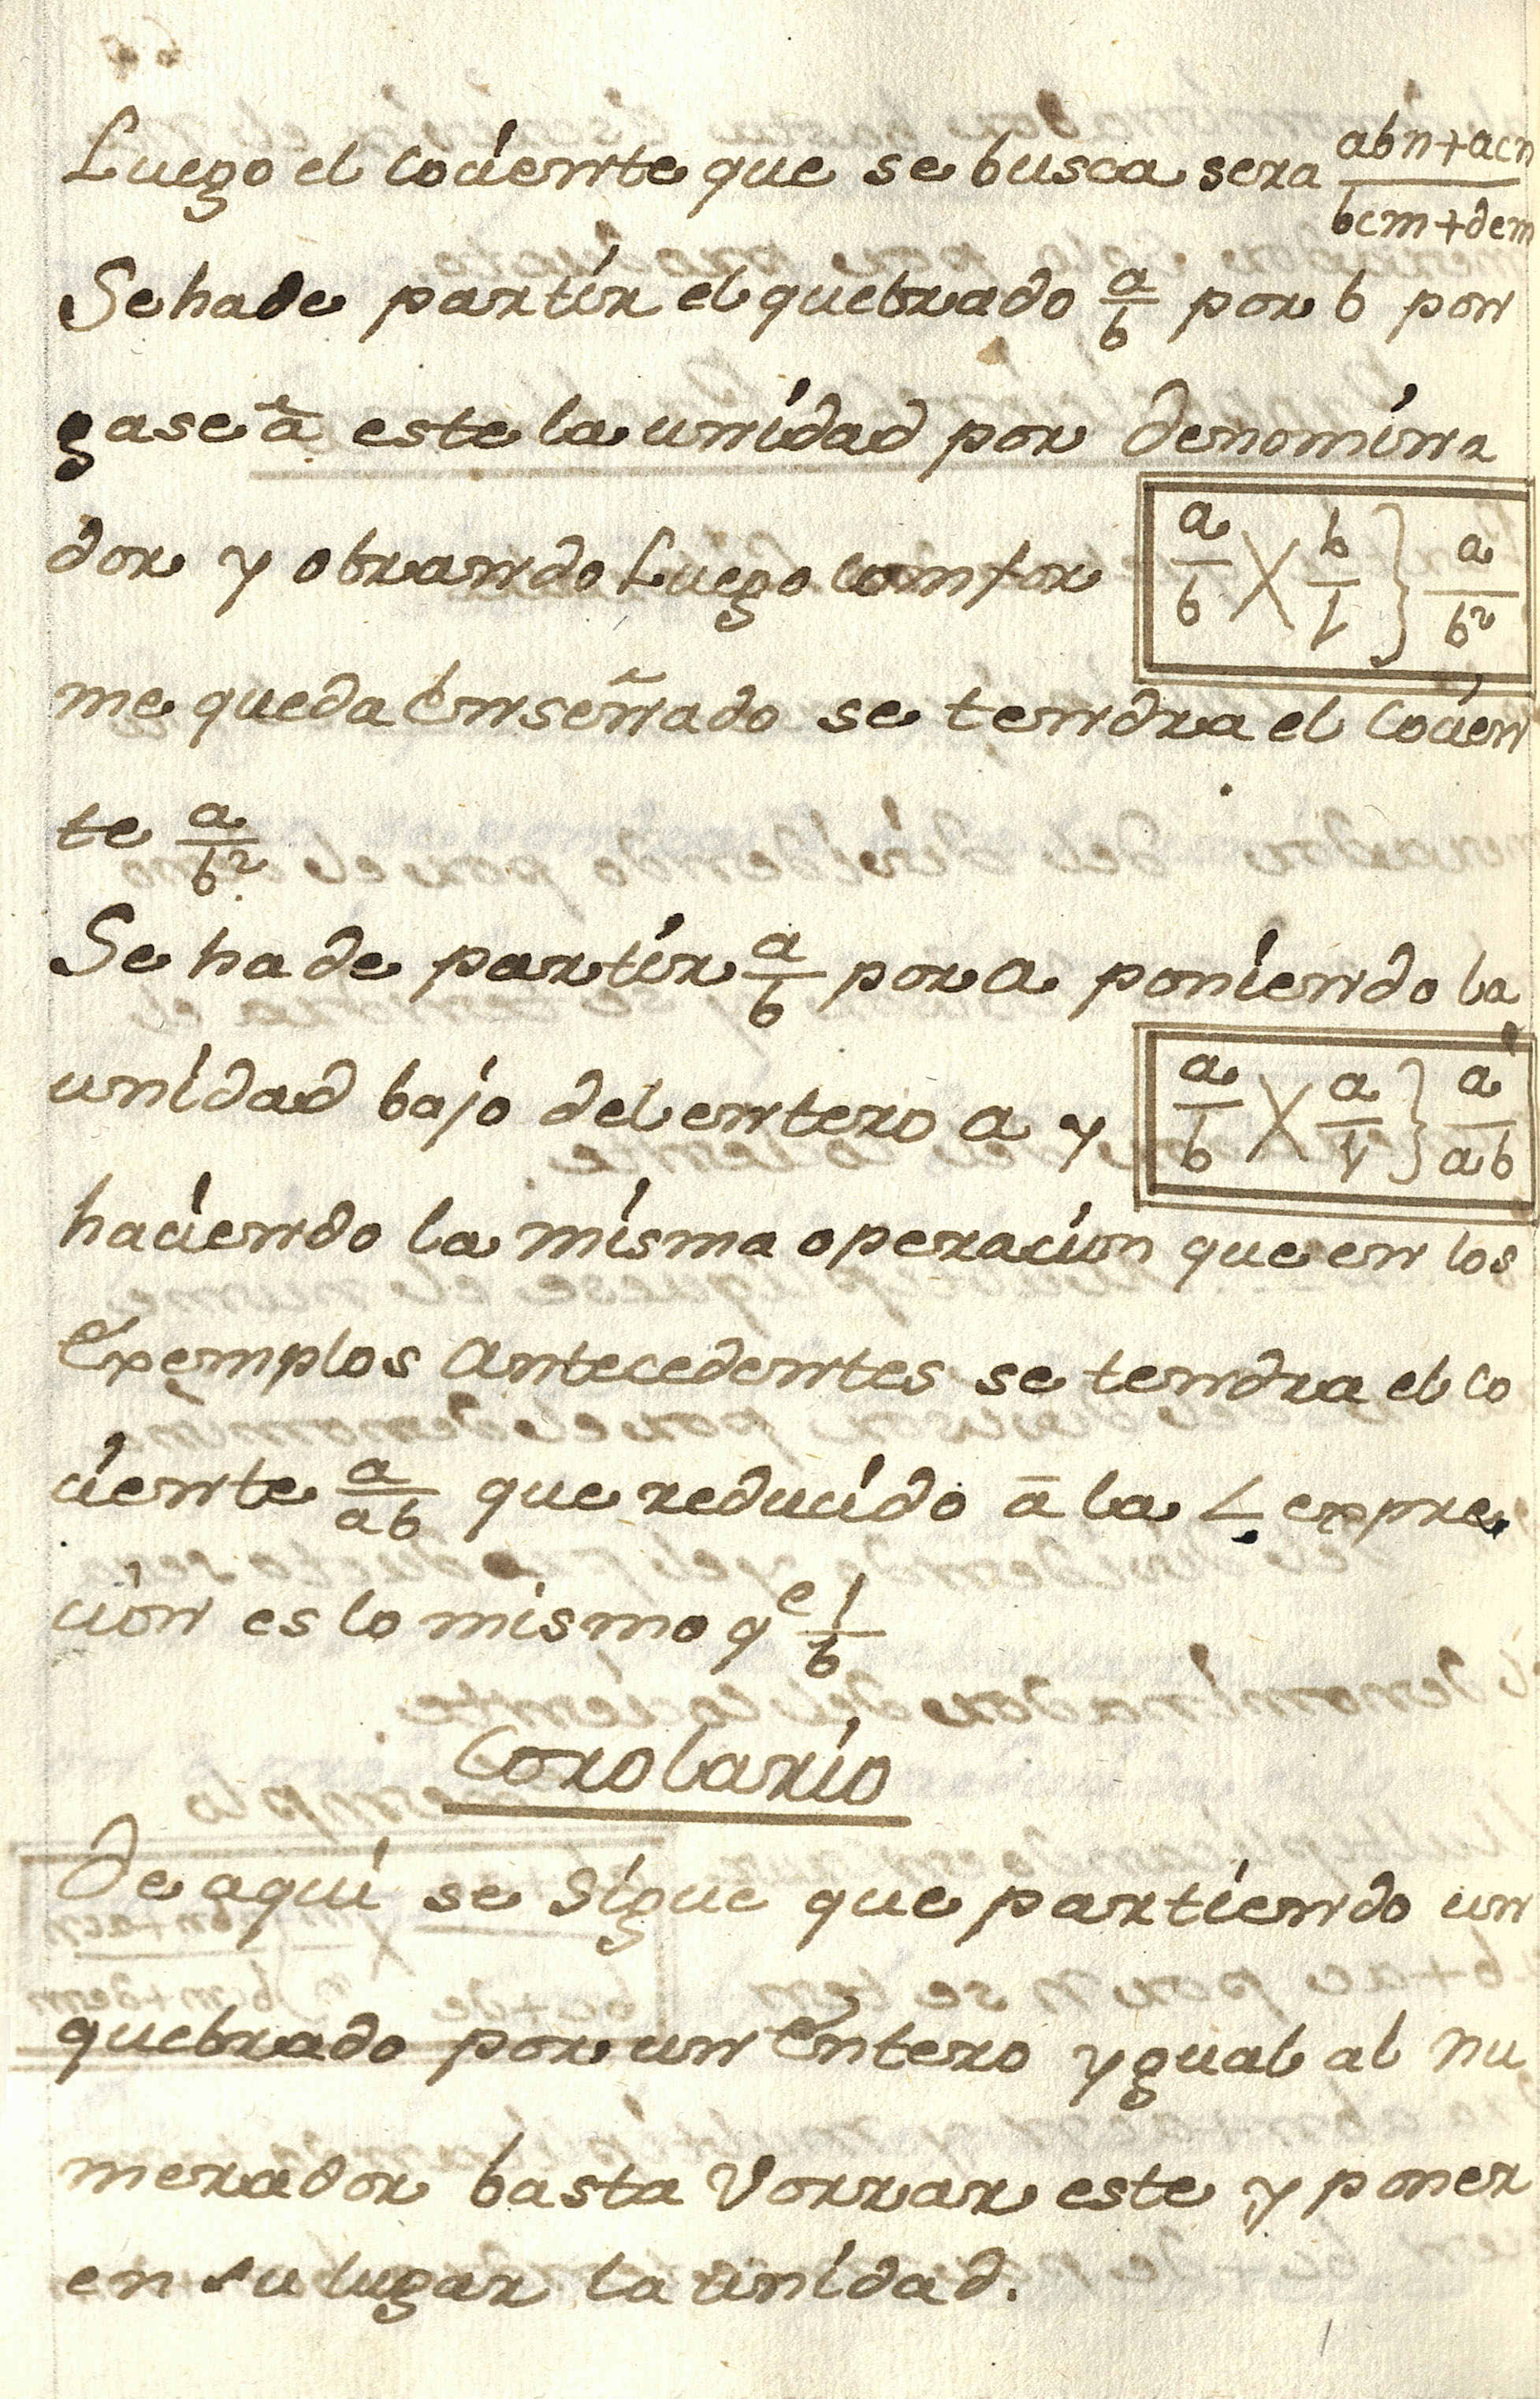 Luego el cociente que se busca sera abn+acn/bcm+dem
Se ha de partir el quebrado a/b por b pon
gase â este la unidad por denomina
dor y obrando Luego confor
a/b × b/1 } a/b²
me queda Enseñado se tendra el Cocien
te a/b²
Se ha de partir a/b por a poniendo la
unidad bajo del entero a y
a/b × a/1 } a/ab
haciendo la misma operacion que en los
Exemplos Antecedentes se tendra el co
ciente a/ab que reducido ā la expre
cion es lo mismo qe 1/b
Corolario
De aqui se sigue que partiendo un
quebrado por un Entero ygual al nu
merador basta Vorrar este y poner
en su lugar la unidad.